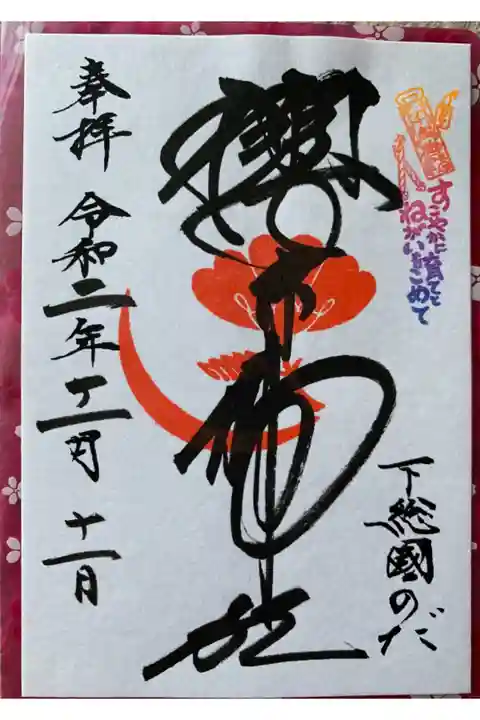 すこやかに育てと
ねがいをこめて
下総國のだ
櫻木神社
奉拝 令和二年十一月 十一日